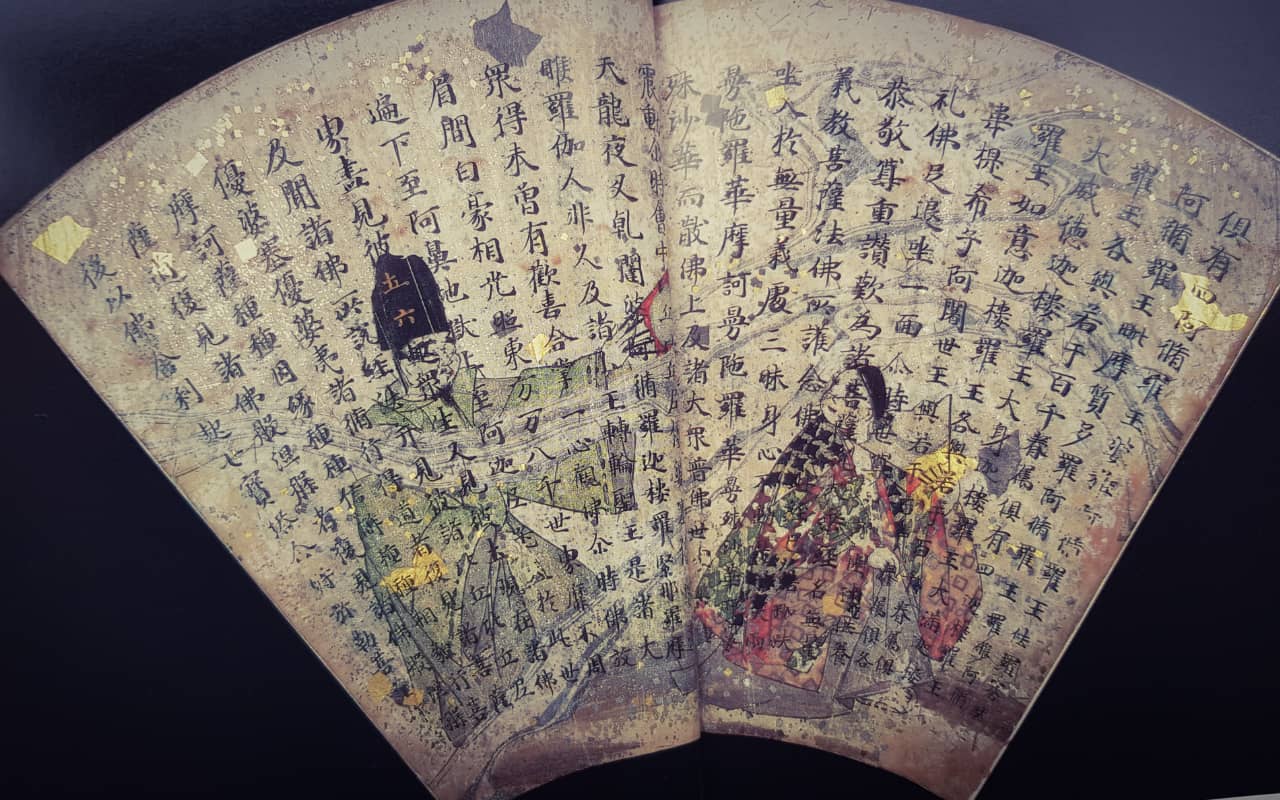 俱有四阿脩羅王婆稚阿脩羅王佉羅騫馱
阿脩羅王毗摩質多羅阿脩羅王羅睺阿脩
羅王各與若干百千眷屬俱有四迦樓羅王
大威德迦樓羅王大身迦樓羅王大滿迦樓
羅王如意迦樓羅王各與若干百千眷屬俱
韋提希子阿闍世王與若干百千眷屬俱各
礼佛足退坐一面尒時世尊四眾圍遶供養
恭敬尊重讚歎為諸菩薩說大乘經名無量
義教菩薩法佛所護念佛說此經已結跏趺
坐入於無量義處三昧身心不動是時天雨
曼陀羅華摩訶曼陀羅華曼殊沙華摩訶曼
殊沙華而散佛上及諸大眾普佛世界
震動尒時會中比丘
天龍夜叉乹闥婆阿脩羅迦樓羅緊那羅摩
睺羅伽人非人及諸小王轉輪聖王是諸大
眾得未曾有歡喜合掌一心觀佛尒時佛放
眉間白豪相光照東方万八千世界靡不周
遍下至阿鼻地獄上至阿迦尼吒天於此世
界盡見彼土六趣眾生又見彼土現在諸佛
及聞諸佛所說經法并見彼諸比丘比丘尼
優婆塞優婆夷諸脩行得道者復見諸菩薩
摩訶薩種種因緣種種信解種種相貌行菩
薩道復見諸佛般涅槃者復見諸佛般涅槃
後以佛舍利起七寶塔尒時弥勒菩